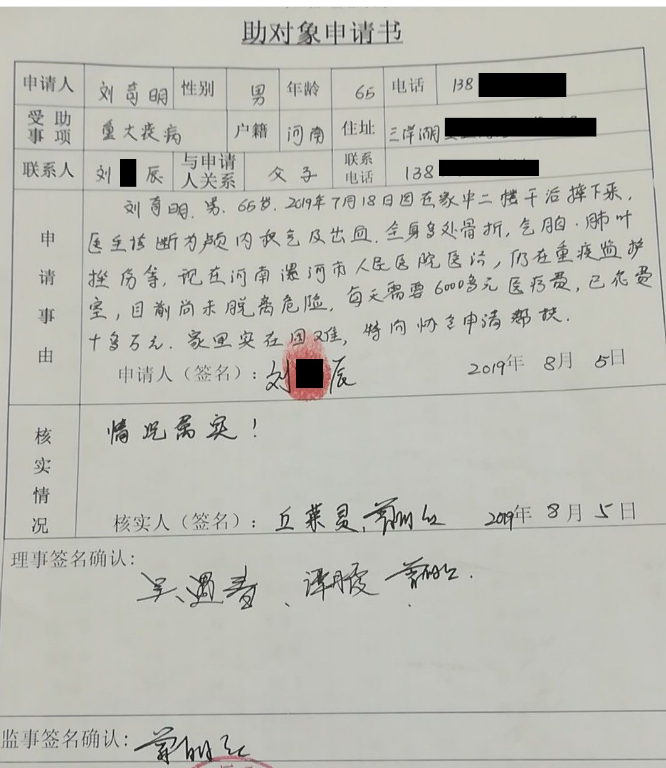 助对象申请书
申请人 刘奇明 性别 男 年龄 65 电话 138
受助事项 重大疾病 户籍 河南 住址 三洋湖
联系人 刘 辰 与申请人关系 父子 联系电话 138
申请事由
刘奇明、男、65岁、2019年7月18日因在家中二楼干活摔下来,
医生诊断为颅内积气及出血、全身多处骨折,气胸、肺叶
挫伤等,现在河南漯河市人民医院医治,仍在重症监护
室,目前尚未脱离危险,每天需要6000多元医疗费,已花费
十多万元、家里实在困难,特向协会申请帮扶.
申请人(签名):刘 辰 2019年8月5日
核实情况
情况属实!
核实人(签名): 2019年8月5日
理事签名确认:
监事签名确认: